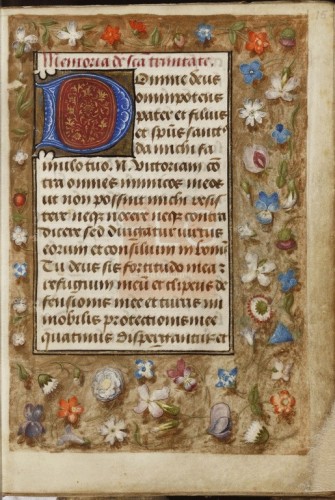 Memoria de sca trinitate.
Domine deus
omnipotens
pater et filius
et spus sanct'
da michi fa
mulo tuo. N. Victoriam co
tra omnes inimicos meos
ut non possint michi resis
tere neq3 nocere neq3 contra
dicere sed dirigatur virtus
eorum et consilium in bonu
Tu deus sis fortitudo mea:
refugium meu et clipeus de
fensionis mee et turris im
mobilis protectionis mee
quatinus dispergantur et